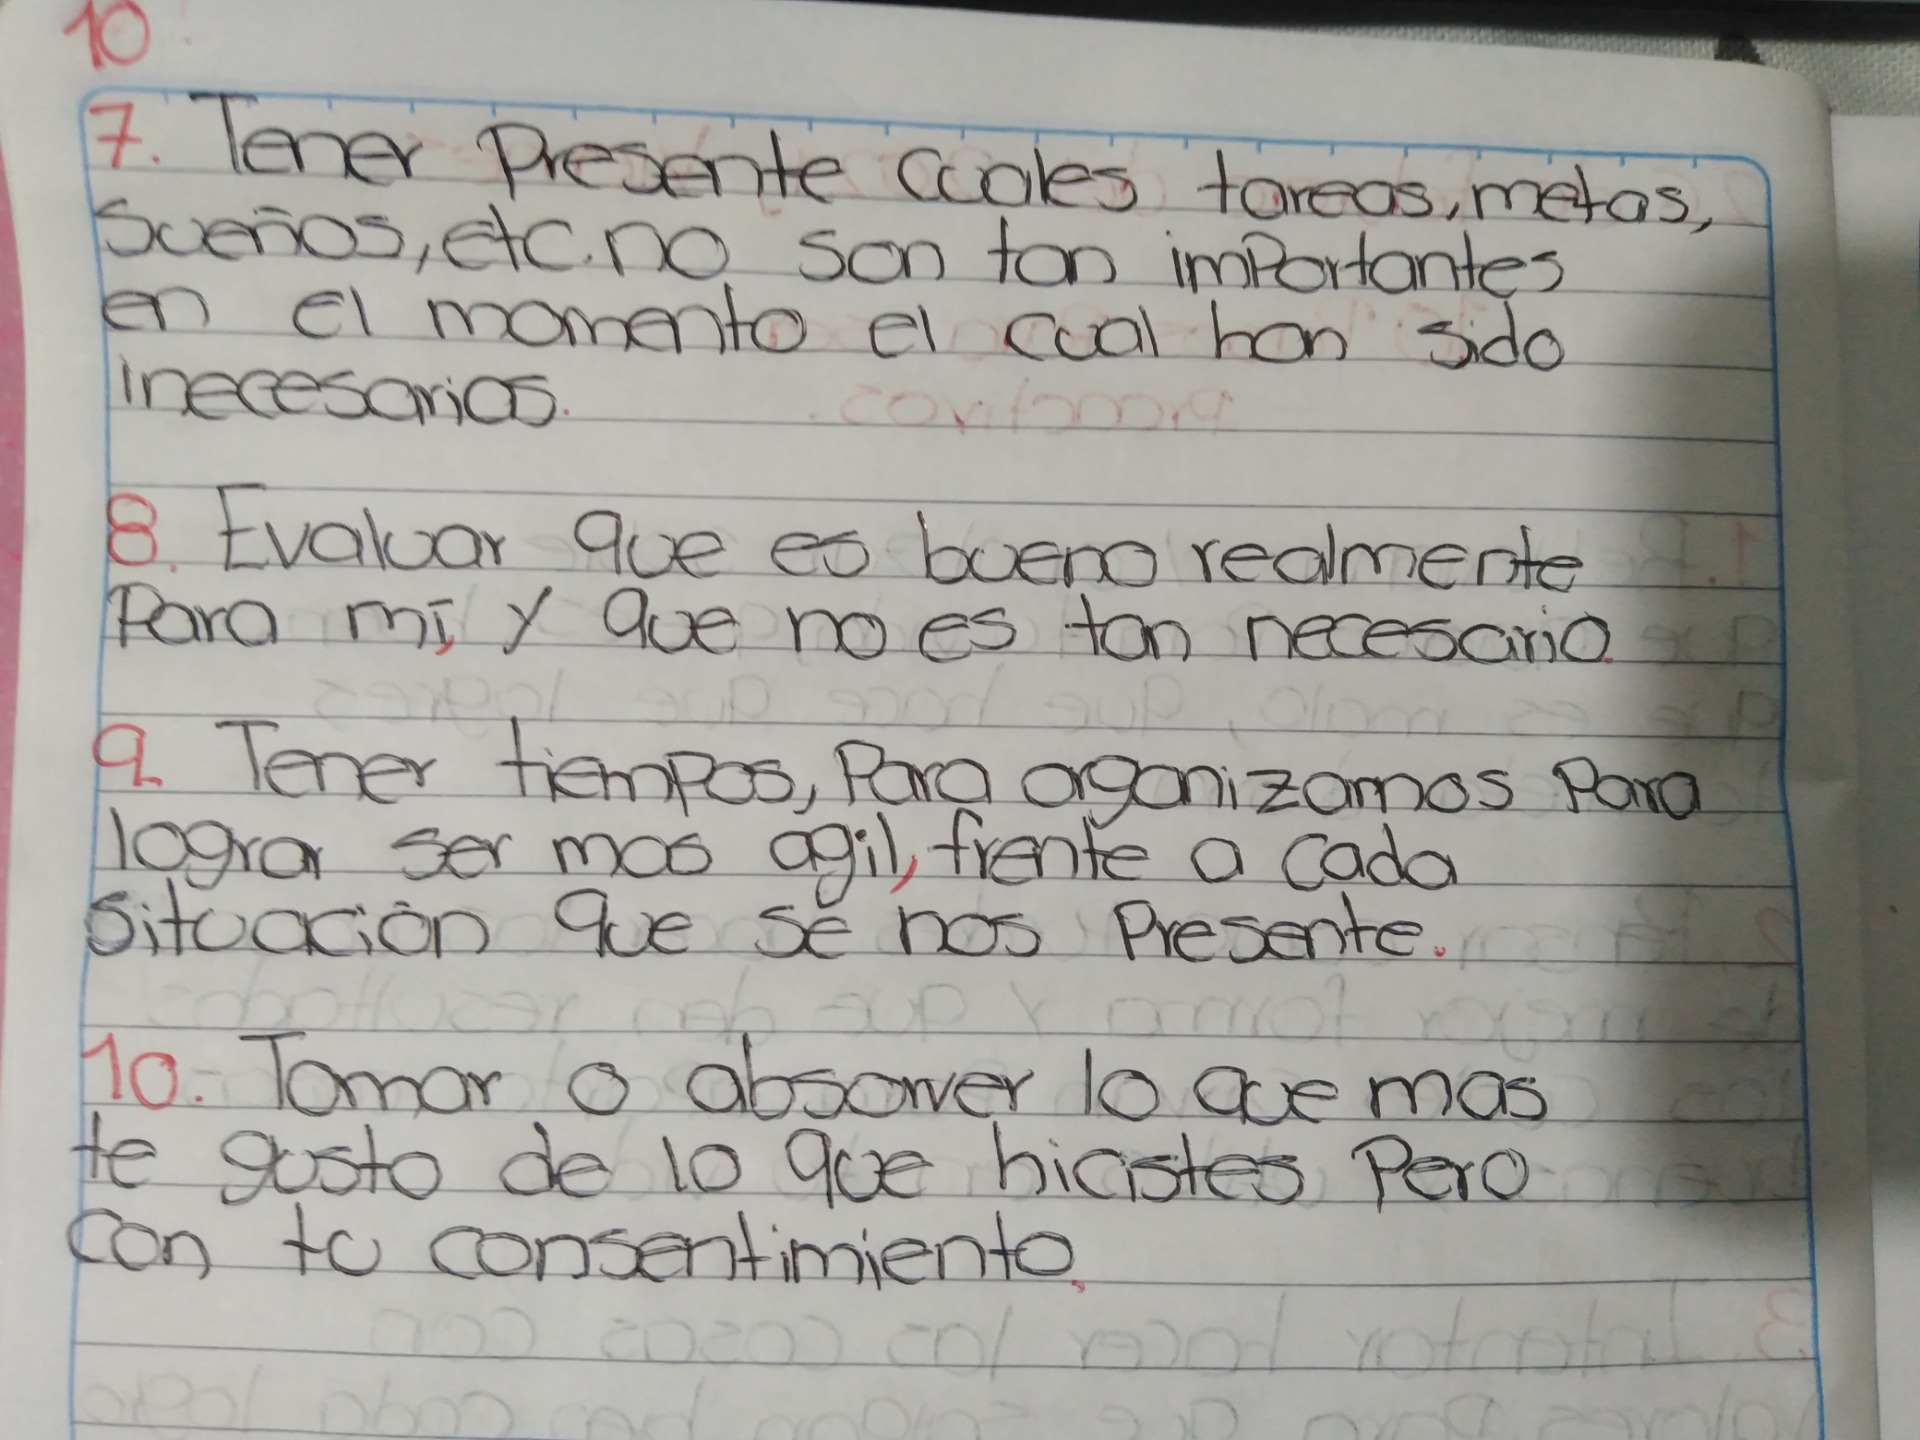 10
7. Tener presente cuales tareas, metas,
sueños, etc. no son tan importantes
en el momento el cual han sido
inecesarios.
8. Evaluar que es bueno realmente
Para mí, y que no es tan necesario.
9. Tener tiempos, Para organizarnos Para
lograr ser mas agil, frente a cada
situación que se nos Presente.
10. Tomar o absorver lo que mas
te gusto de lo que hicistes Pero
con tu consentimiento.